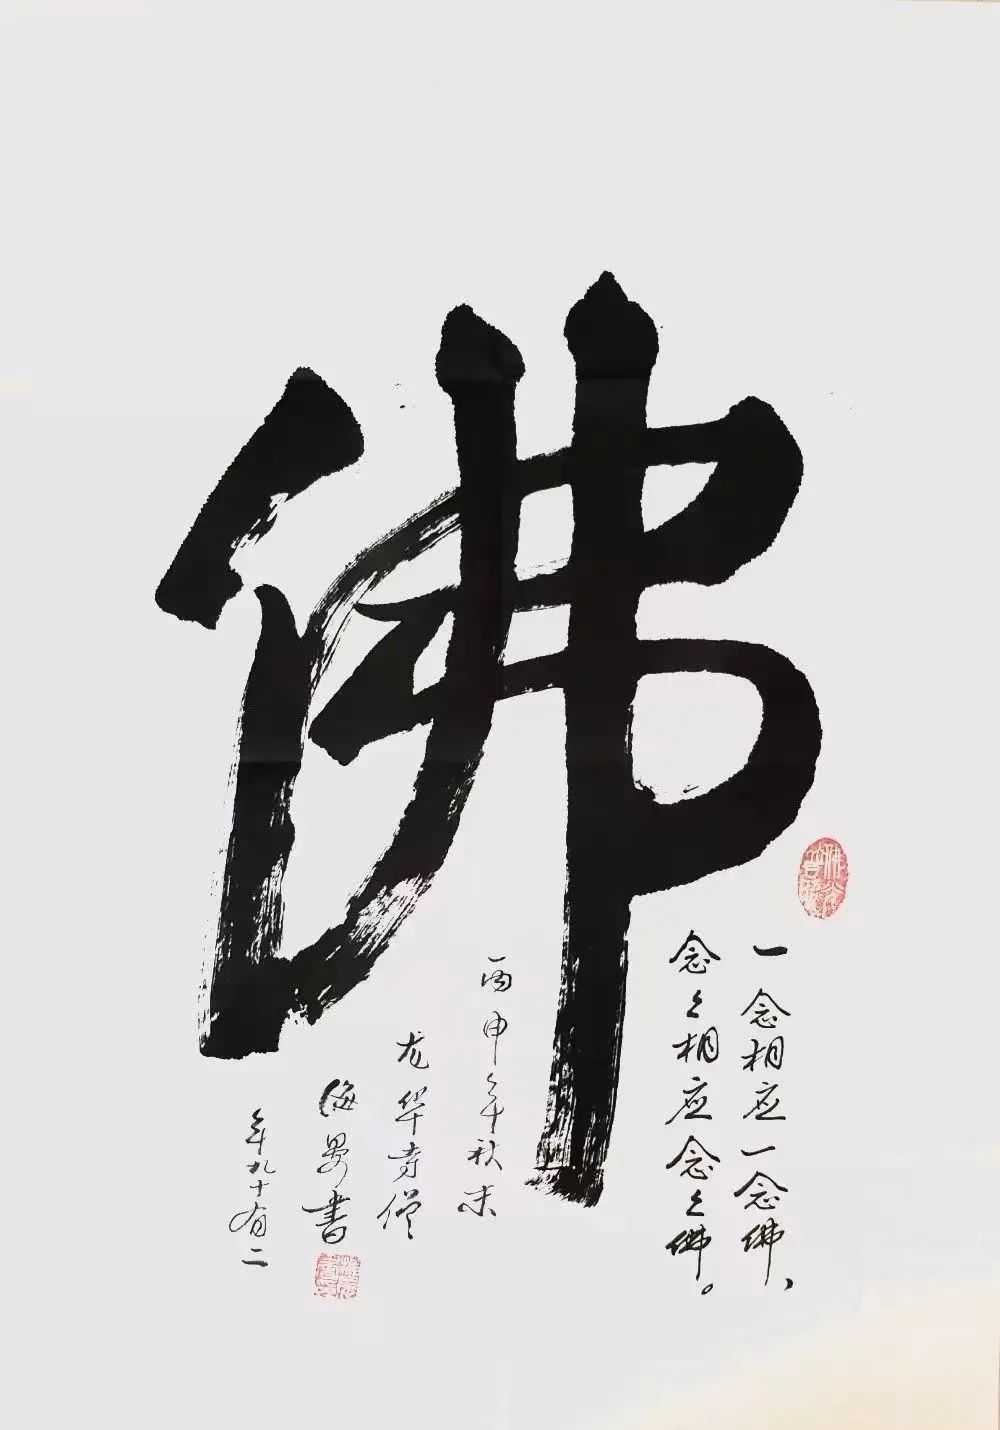 佛
一念相应一念佛、
念々相应念々佛。
丙申年秋末
龙华寺僧
海曇書
年九十有二